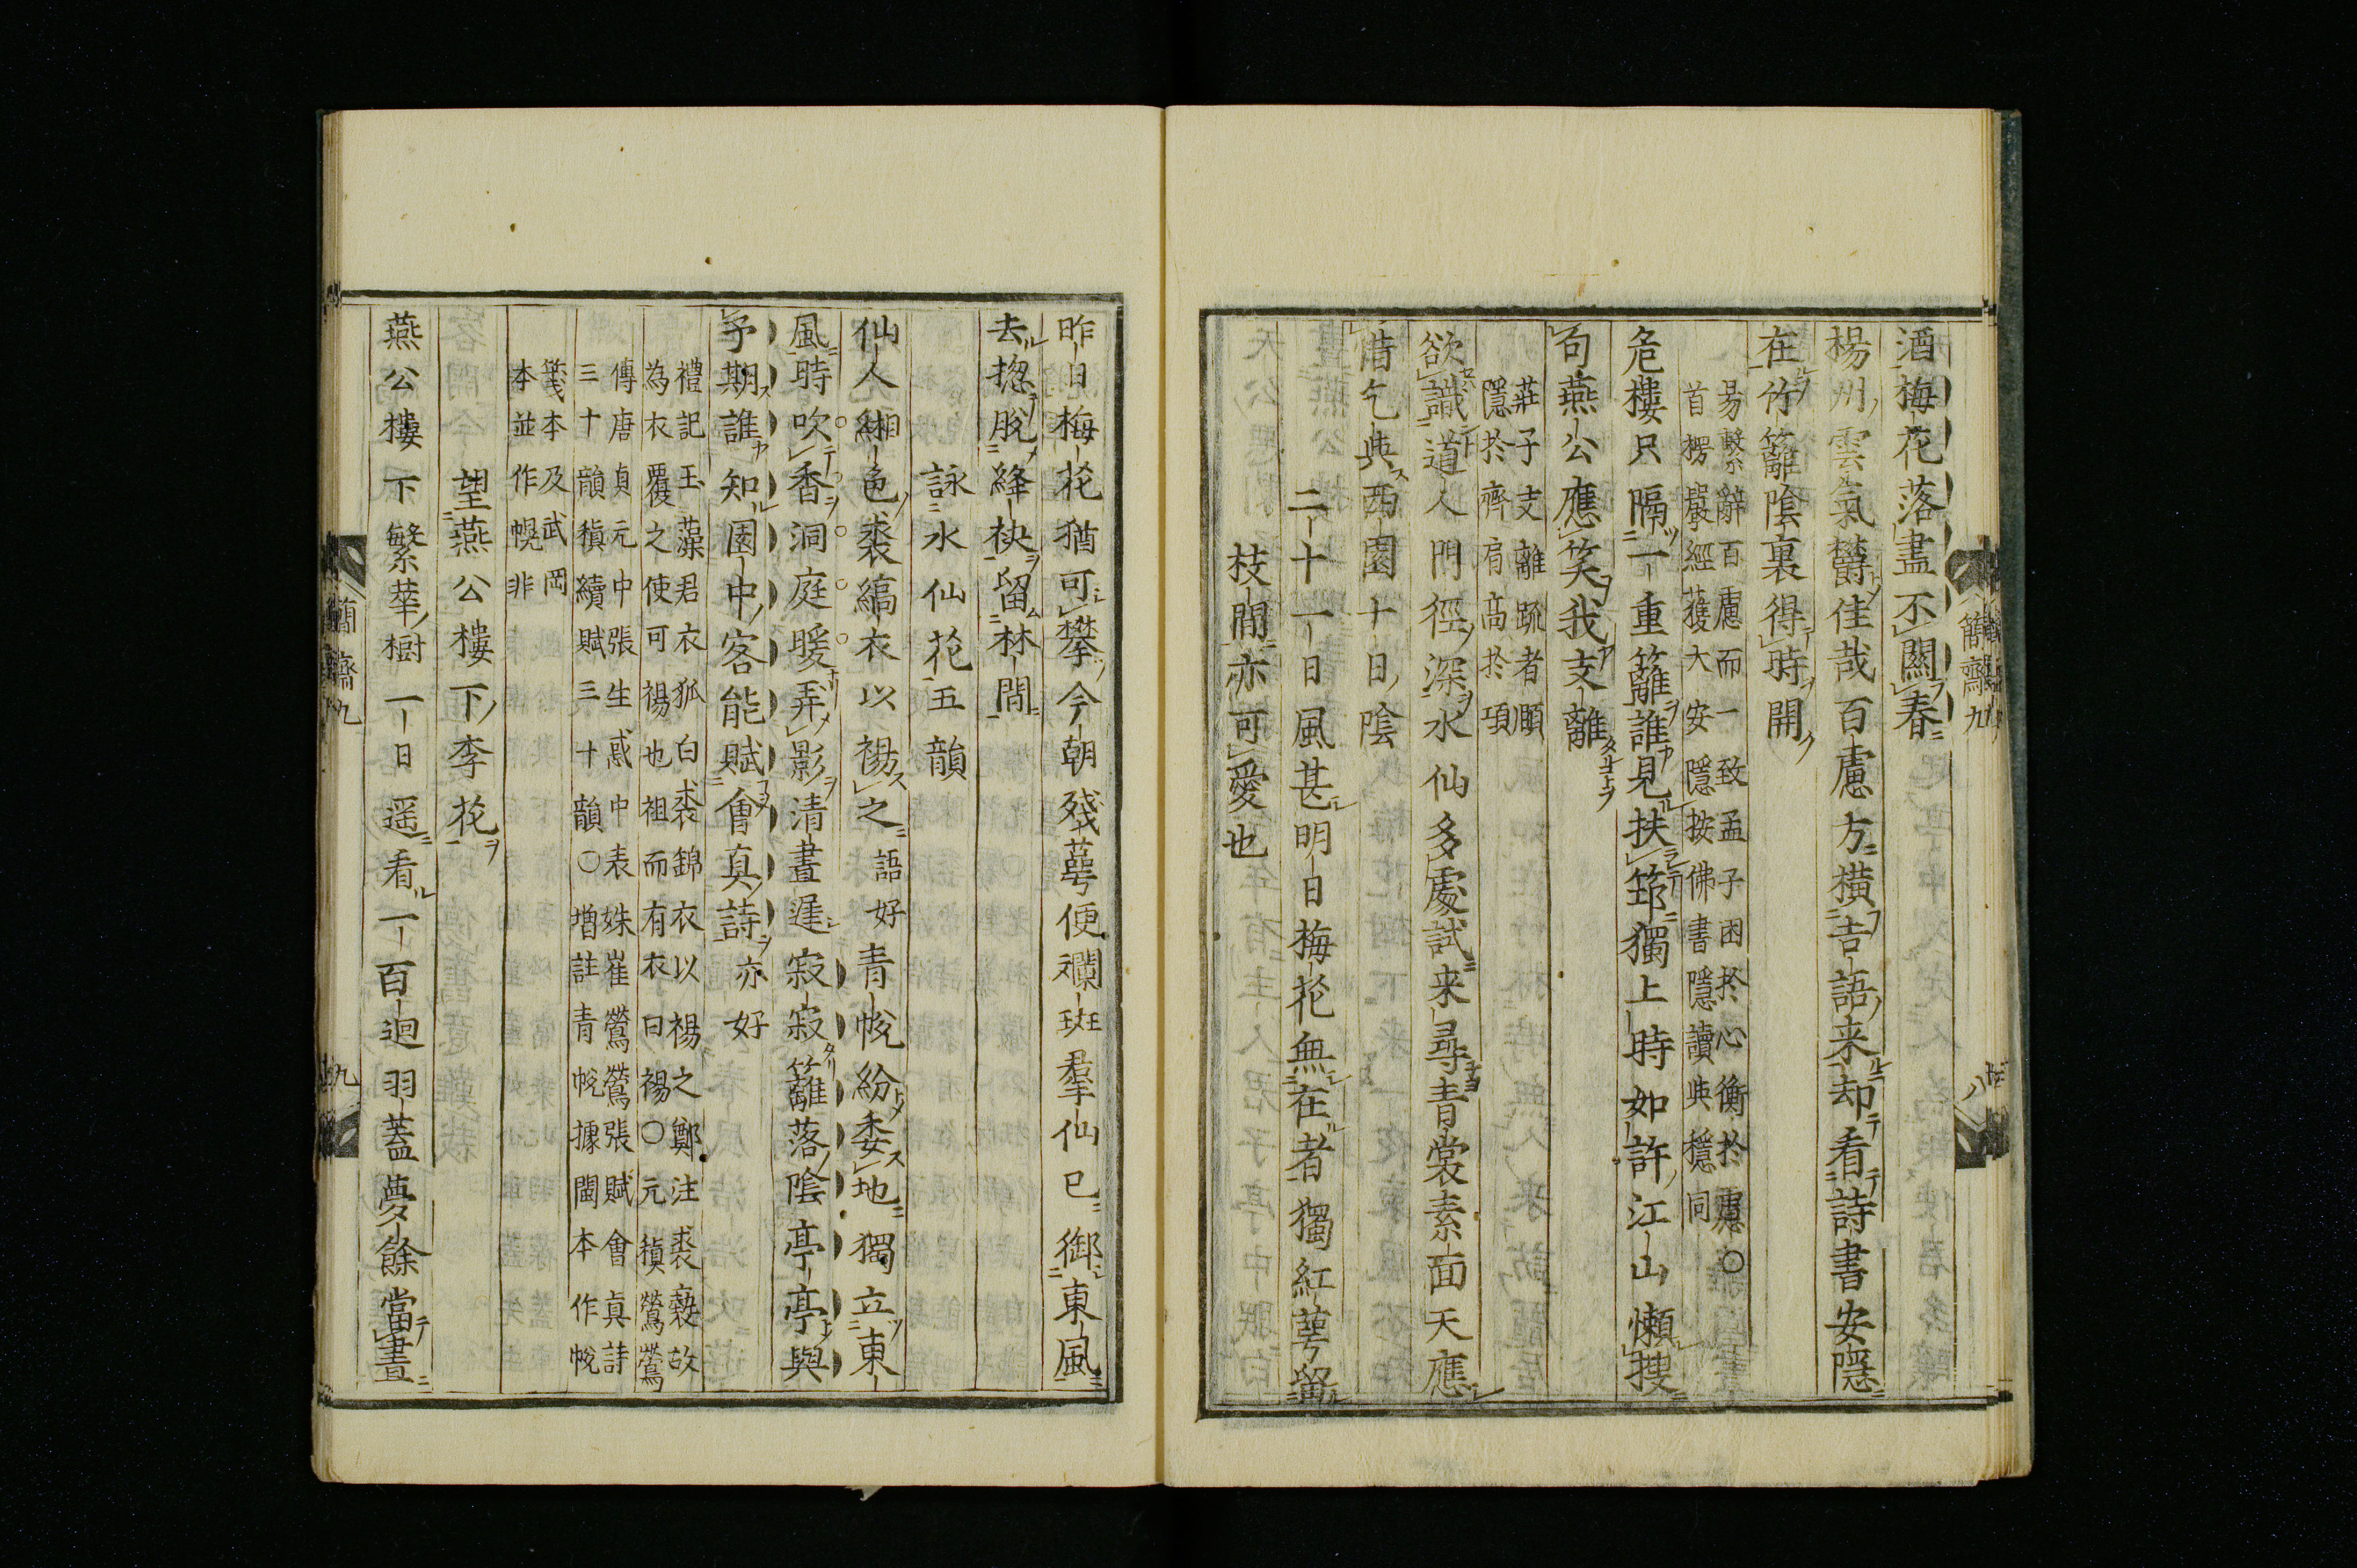 酒梅花落盡不關春
楊州雲氣欝佳哉百慮方横吉語来却看詩書安隱
在竹籬陰裏得時開
昜繫辭百慮而一致孟子困於心衡於慮○
首楞嚴經獲大安隱按佛書隱讀與穩同
危樓只隔一重籬誰見扶筇獨上時如許江山懶搜
句燕公應笑我支離
莊子支離疏者頤
隱於齊肩髙於項
欲識道人門徑深水仙多處試来尋青裳素面天應
惜乞與西園十日陰
二十一日風甚明日梅花無在者獨紅萼留
枝間亦可愛也
簡齋九
八
昨日梅花猶可攀今朝殘萼便斕斑羣仙已御東風
去揔脫絳袂留林間
詠水仙花五韻
仙人緗色裘縞衣以裼之語好青帨紛委地獨立東
風時吹香洞庭暖弄影清晝遲寂寂籬落陰亭亭與
予期誰知園中客能賦會真詩亦好
禮記玉藻君衣狐白裘錦衣以裼之鄭注裘褻故
為衣覆之使可裼也袒而有衣曰裼○元稹鶯鶯
傳唐貞元中張生惑中表姝崔鶯鶯張賦會真詩
三十韻稹續賦三十韻○增註青帨據閩本作帨
箋本及武岡
本並作幌非
望燕公樓下李花
燕公樓下繁華樹一日遥看一百迴羽蓋夢餘當晝
簡齋九
九